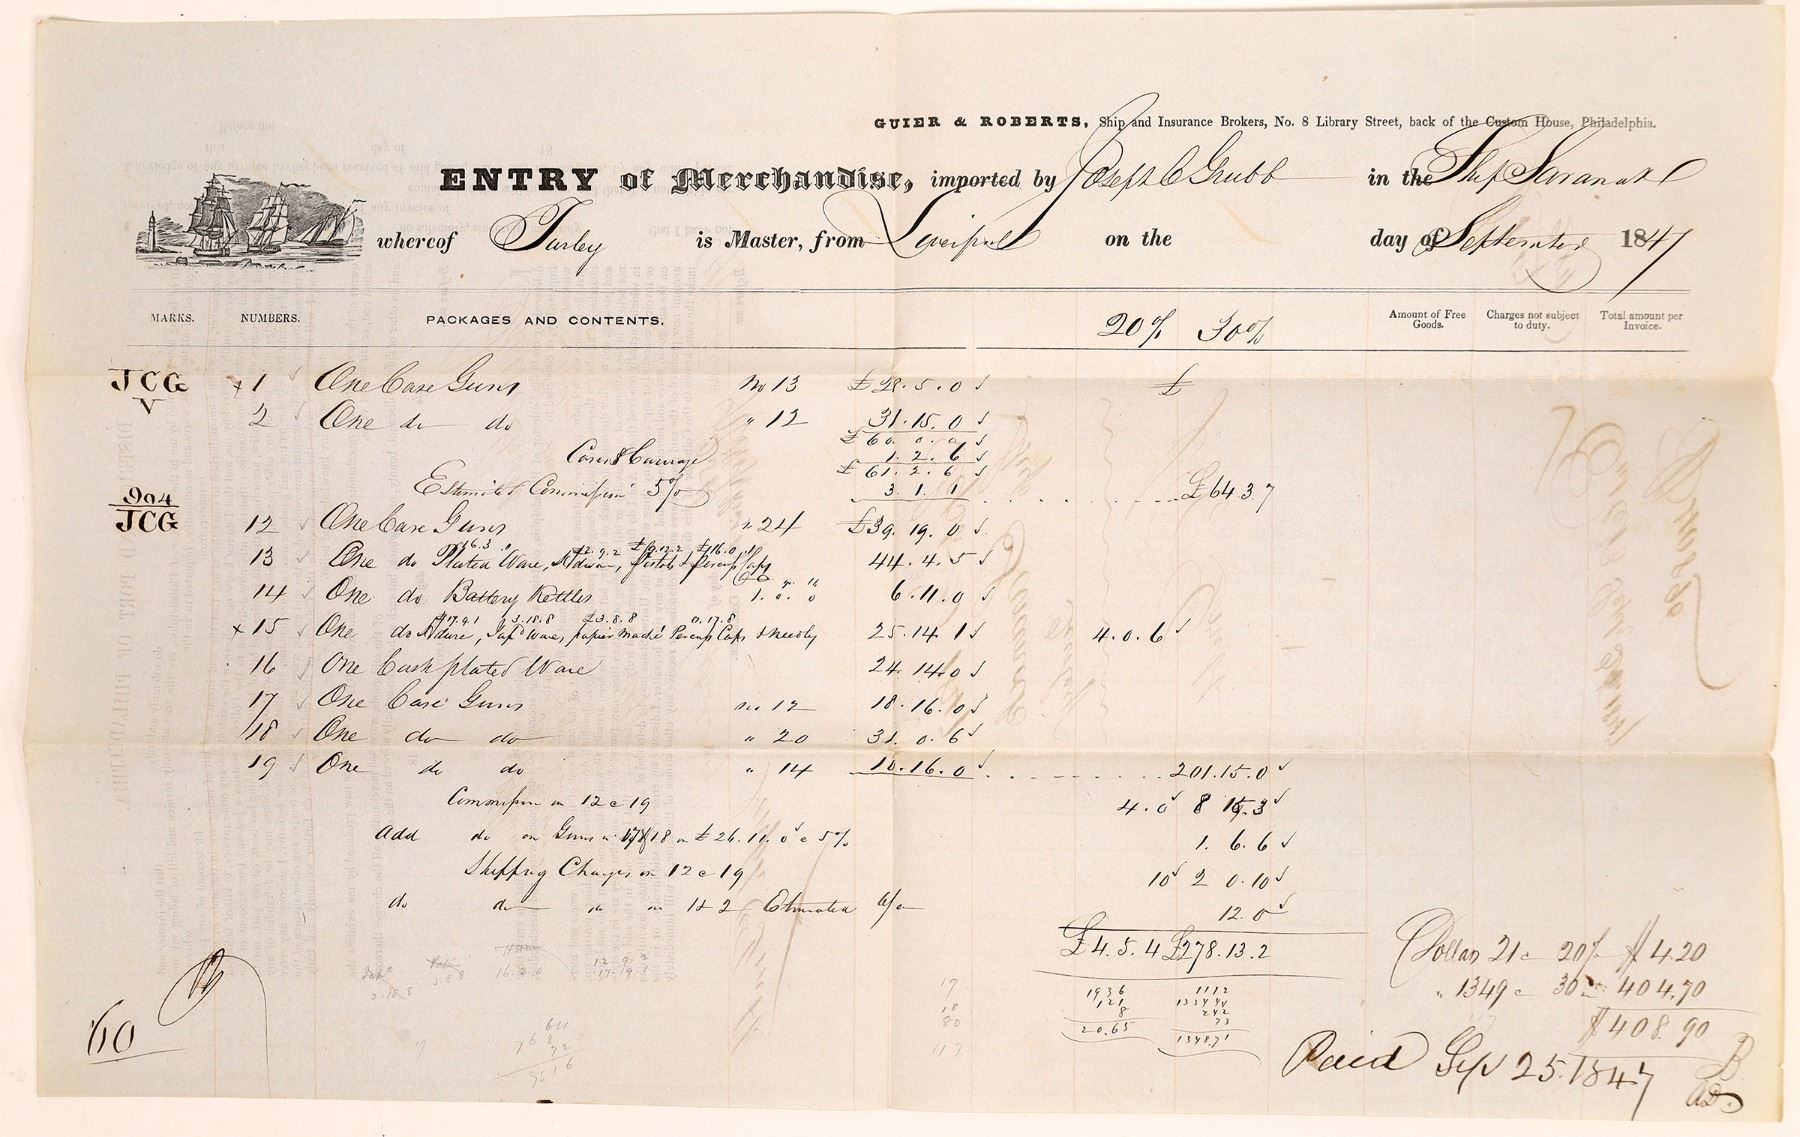 GUIER & ROBERTS, Ship and Insurance Brokers, No. 8 Library Street, back of the Custom House, Philadelphia.
ENTRY of Merchandise, imported by Joseph C Grubb in the Ship Saranak
whereof Turley is Master, from Liverpool on the day of September 1847
MARKS. NUMBERS. PACKAGES AND CONTENTS. 20% 30% Amount of Free Goods. Charges not subject to duty. Total amount per Invoice.
JCG x 1 One Case Guns No 13 £28.5.0 £
V 2 One do do " 12 31.15.0
£60.0.0
Cases & Carriage 1.2.6
£61.2.6
Estimated Commission 5% 3.1.1 £64 3 7
904
JCG 12 One Case Guns " 24 £39.19.0
13 One do Plated Ware, Pistols & Percus Caps 44.4.5
14 One do Battery Kettles 6.11.0
x 15 One do Jap Ware, papier Maché Percus Caps 25.14.1 4.0.6
16 One Cask plated Ware 24.14.0
17 One Case Guns no 12 18.16.0
18 One do do " 20 31.0.6
19 One do do " 14 10.16.0 201.15.0
Commission on 12 a 19 4.0 8 15.3
Add do on Guns 18 on £26.11.0 a 5% 1.6.6
Shipping Charges on 12 a 19 10 2 0.10
do do 1 & 2 Estimated 6/ 12.0
£4.5.4 £278.13.2
Dollars 21 a 20% $4.20
" 1349 a 30 404.70
$408.90
1936 1112
121 13344
8 242
20.65 73
1348.71
Paid Sep 25. 1847
60